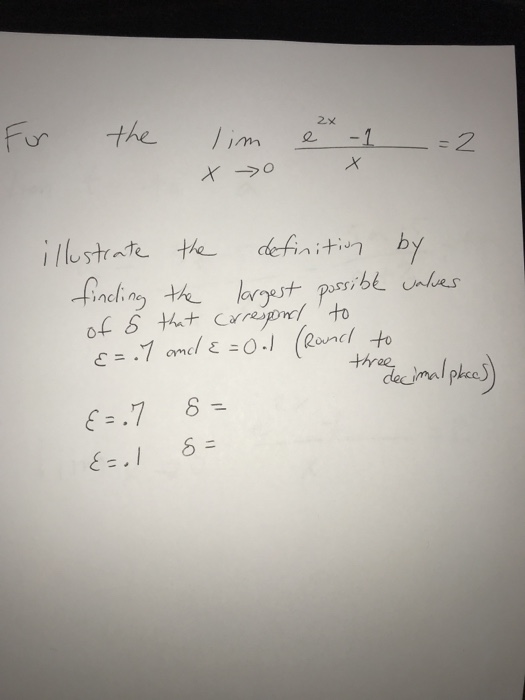 For the lim e^2x -1 / x = 2
x →0
illustrate the definition by
finding the largest possible values
of δ that correspond to
ε = .7 and ε = 0.1 (Round to
three
decimal places)
ε = .7 δ =
ε = .1 δ =